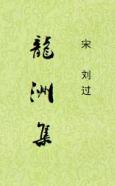 宋 刘过
龍洲集